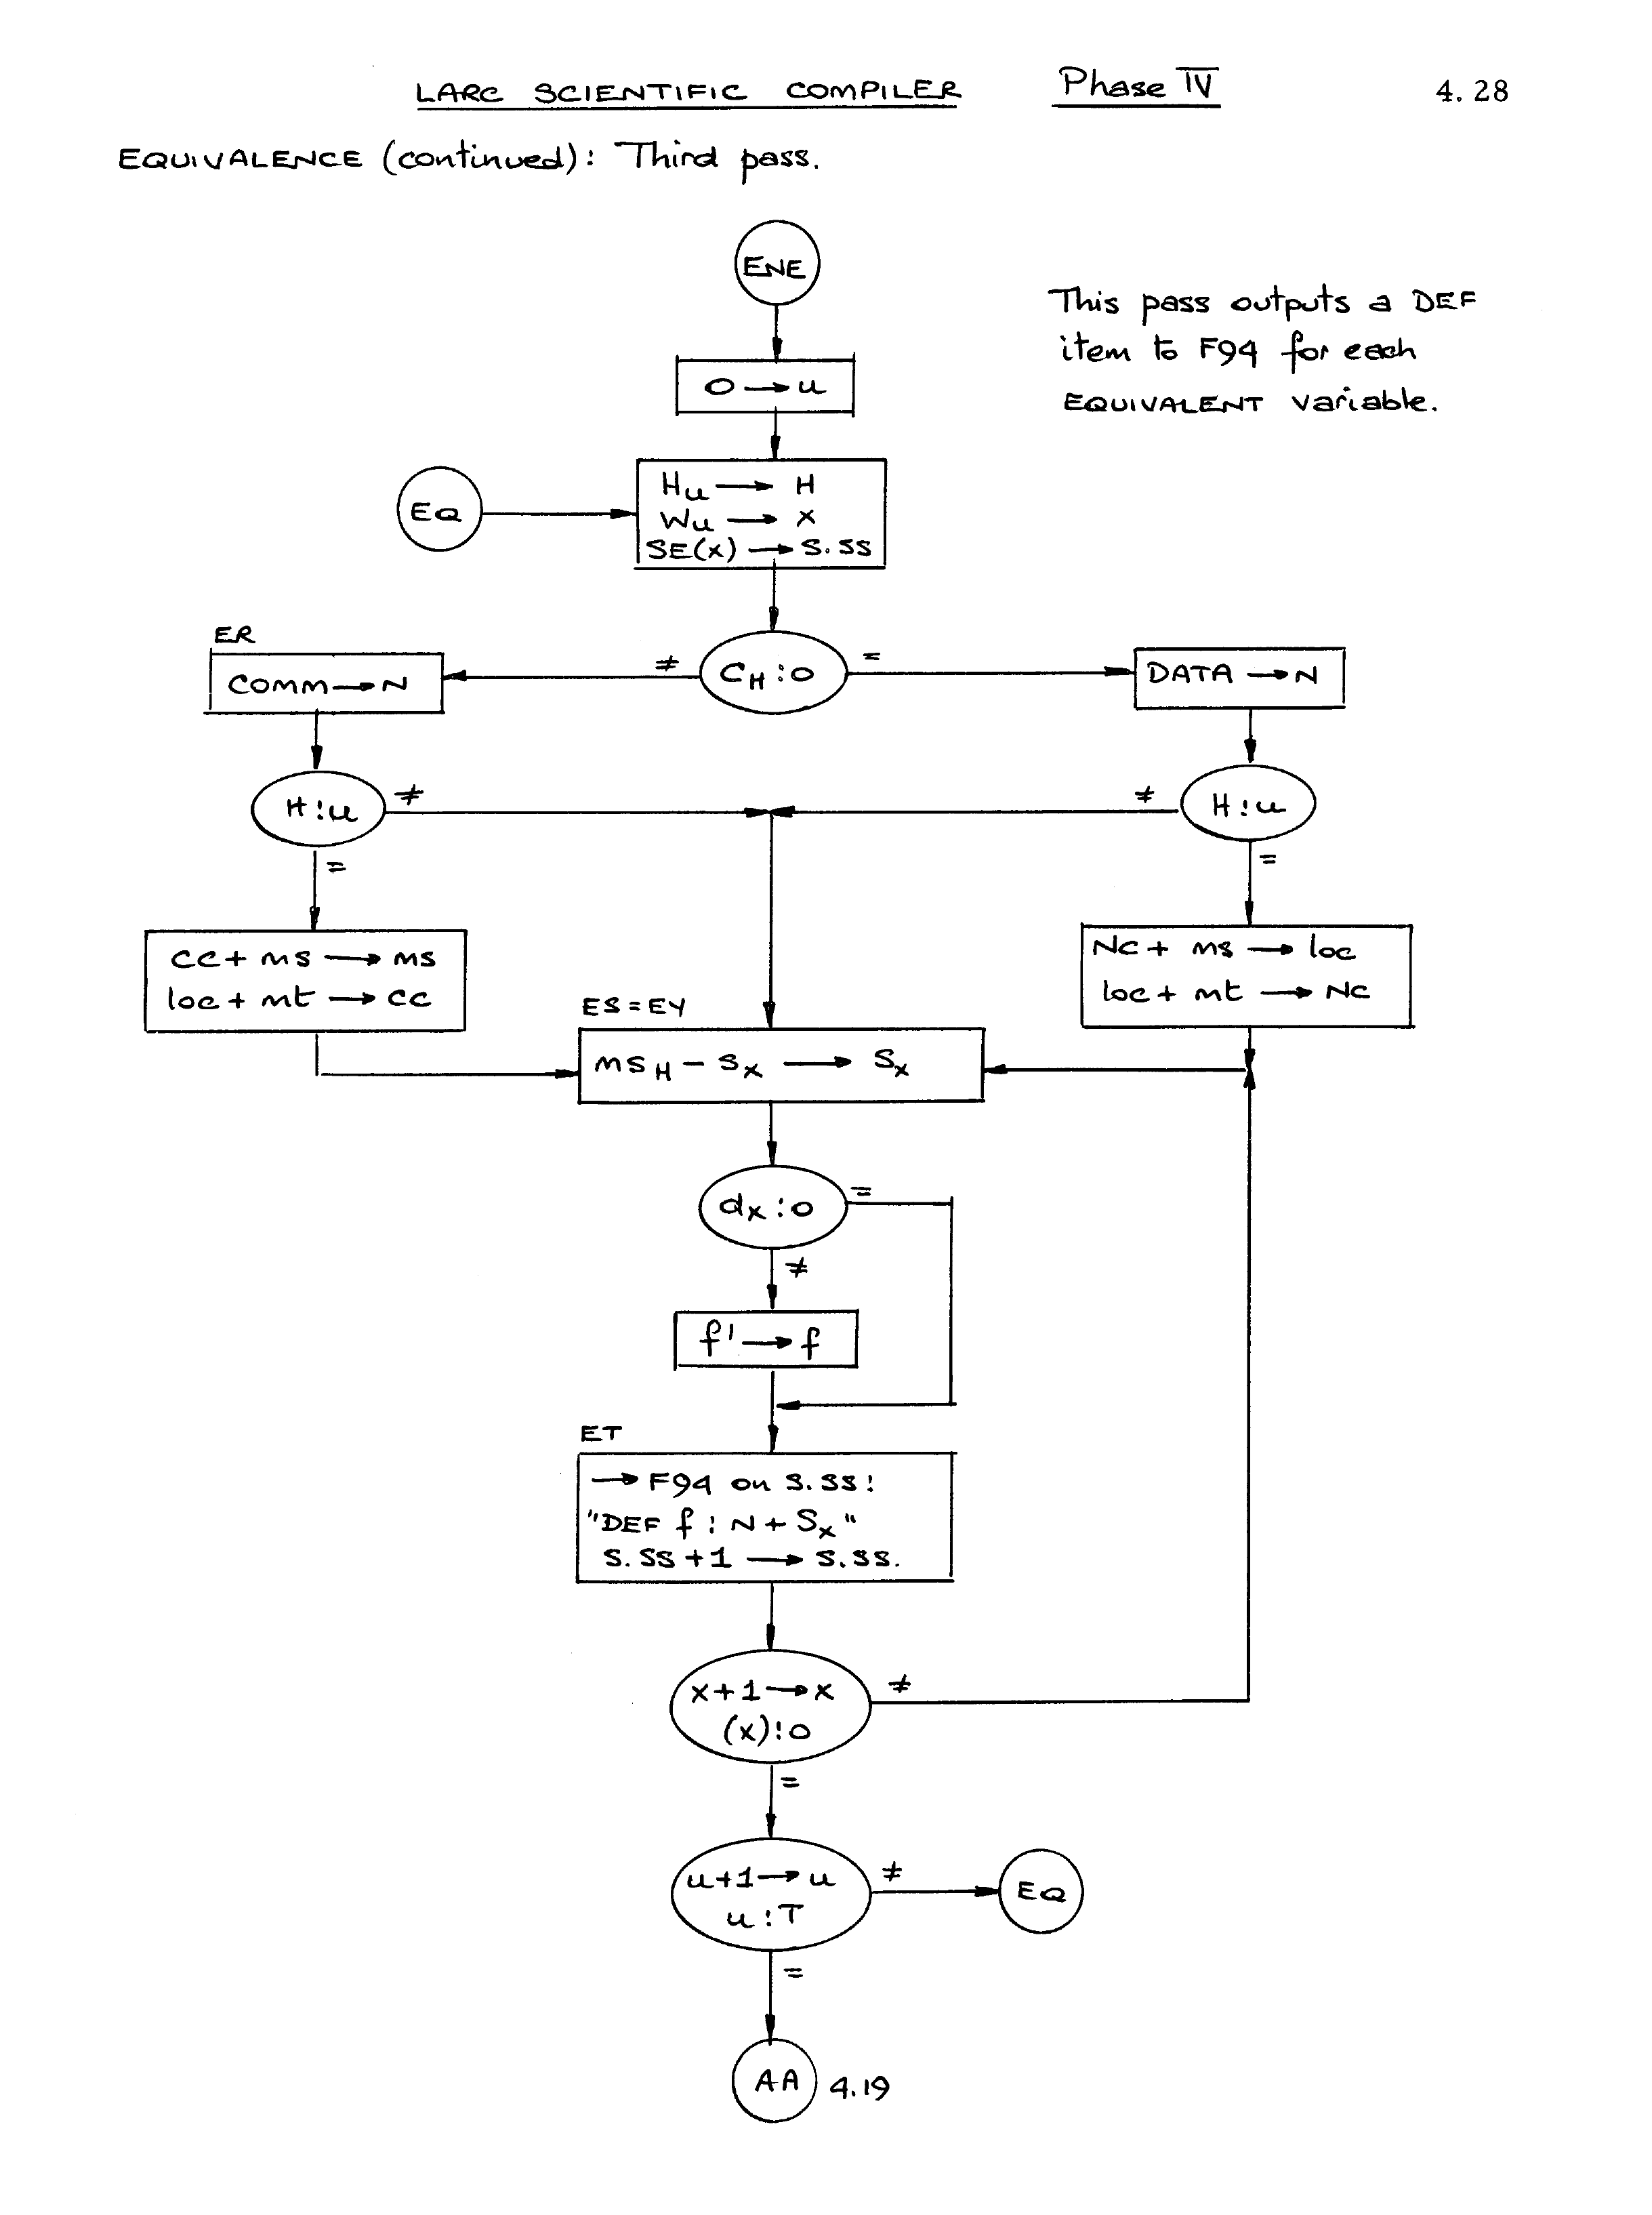 LARC SCIENTIFIC COMPILER Phase IV 4.28
EQUIVALENCE (continued): Third pass.
ENE
This pass outputs a DEF
item to F94 for each
EQUIVALENT variable.
O → u
EQ
Hu → H
Wu → X
SE(x) → S.SS
ER
COMM → N
≠
CH : O
=
DATA → N
H : u
≠
≠
H : u
=
=
CC + MS → MS
loc + mt → CC
NC + MS → loc
loc + mt → NC
ES = EY
MSH − SX → SX
dx : O
=
≠
f' → f
ET
→ F94 on S.SS:
"DEF f : N + SX"
S.SS + 1 → S.SS.
X + 1 → X
(X) : O
≠
=
u + 1 → u
u : T
≠
EQ
=
AA 4.19